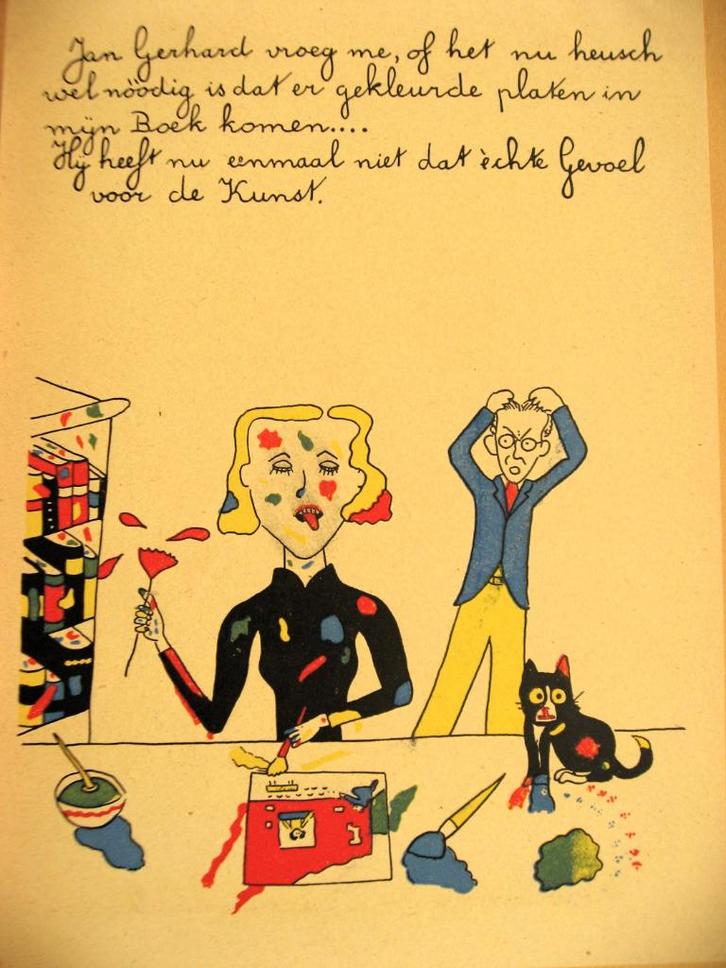 Jan Gerhard vroeg me, of het nu heusch
wel nöödig is dat er gekleurde platen in
mijn Boek komen....
Hij heeft nu eenmaal niet dat èchte Gevoel
voor de Kunst.